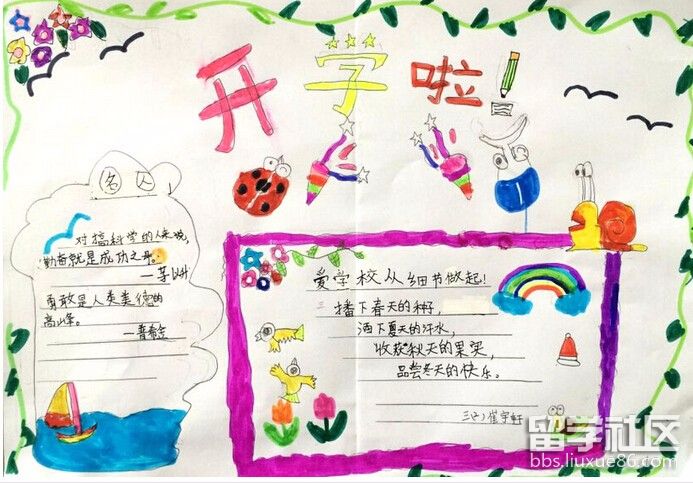 开学啦!
名人
对搞科学的人来说,
勤奋就是成功之母。
—茅以升
勇敢是人类美德的
高峰。
—普希金
爱学校从细节做起!
播下春天的种子,
洒下夏天的汗水,
收获秋天的果实,
品尝冬天的快乐。
崔宇轩
留学社区
bbs.liuxue86.com